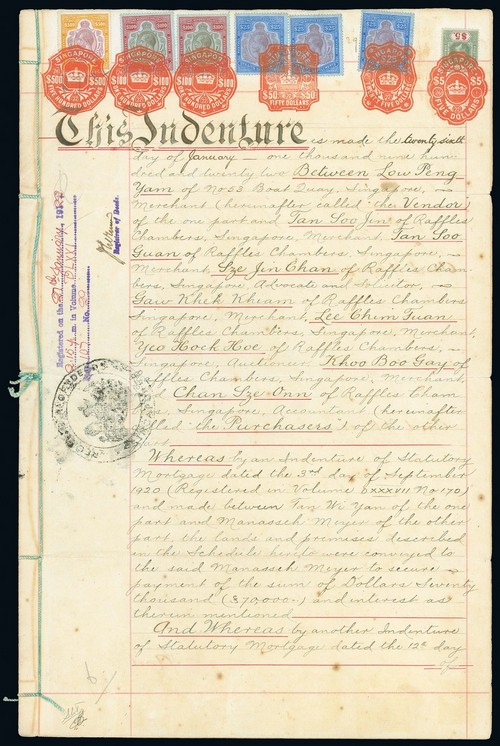 $5
SINGAPORE
$500 $500
FIVE HUNDRED DOLLARS
SINGAPORE
$100 $100
ONE HUNDRED DOLLARS
SINGAPORE
$100 $100
ONE HUNDRED DOLLARS
$50 $50
FIFTY DOLLARS
FIVE DOLLARS
SINGAPORE
$5 $5
FIVE DOLLARS
This Indenture is made the twenty sixth
day of January — one thousand nine hun-
dred and twenty two Between Low Peng
Yam of No 53 Boat Quay, Singapore, —
Merchant (hereinafter called "the Vendor")
of the one part and Tan Soo Jin of Raffles
Chambers, Singapore, Merchant, Tan Soo
Guan of Raffles Chambers, Singapore, —
Merchant, Sze Jin Chan of Raffles Cham-
bers, Singapore, Advocate and Solicitor, —
Gaw Khek Khiam of Raffles Chambers
Singapore, Merchant, Lee Chim Tuan
of Raffles Chambers, Singapore, Merchant,
Yeo Hock Hoe of Raffles Chambers, —
Singapore, Auctioneer, Khoo Boo Gay of
Raffles Chambers, Singapore, Merchant,
Chan Sze Onn of Raffles Cham
Singapore, Accountant (hereinafter
called "the Purchasers") of the other
part
Whereas by an Indenture of Statutory
Mortgage dated the 3rd day of September
1920 (Registered in Volume DXXXVII No 170)
and made between Tan Wi Yan of the one
part and Manasseh Meyer of the other
part, the lands and premises described
in the Schedule hereto were conveyed to
the said Manasseh Meyer to secure —
payment of the sum of Dollars Seventy
thousand ($70,000-) and interest as
therein mentioned
And Whereas by another Indenture
of Statutory Mortgage dated the 12th day
of
Registered on the January, 1922
m. in Volume
No.
Registrar of Deeds.